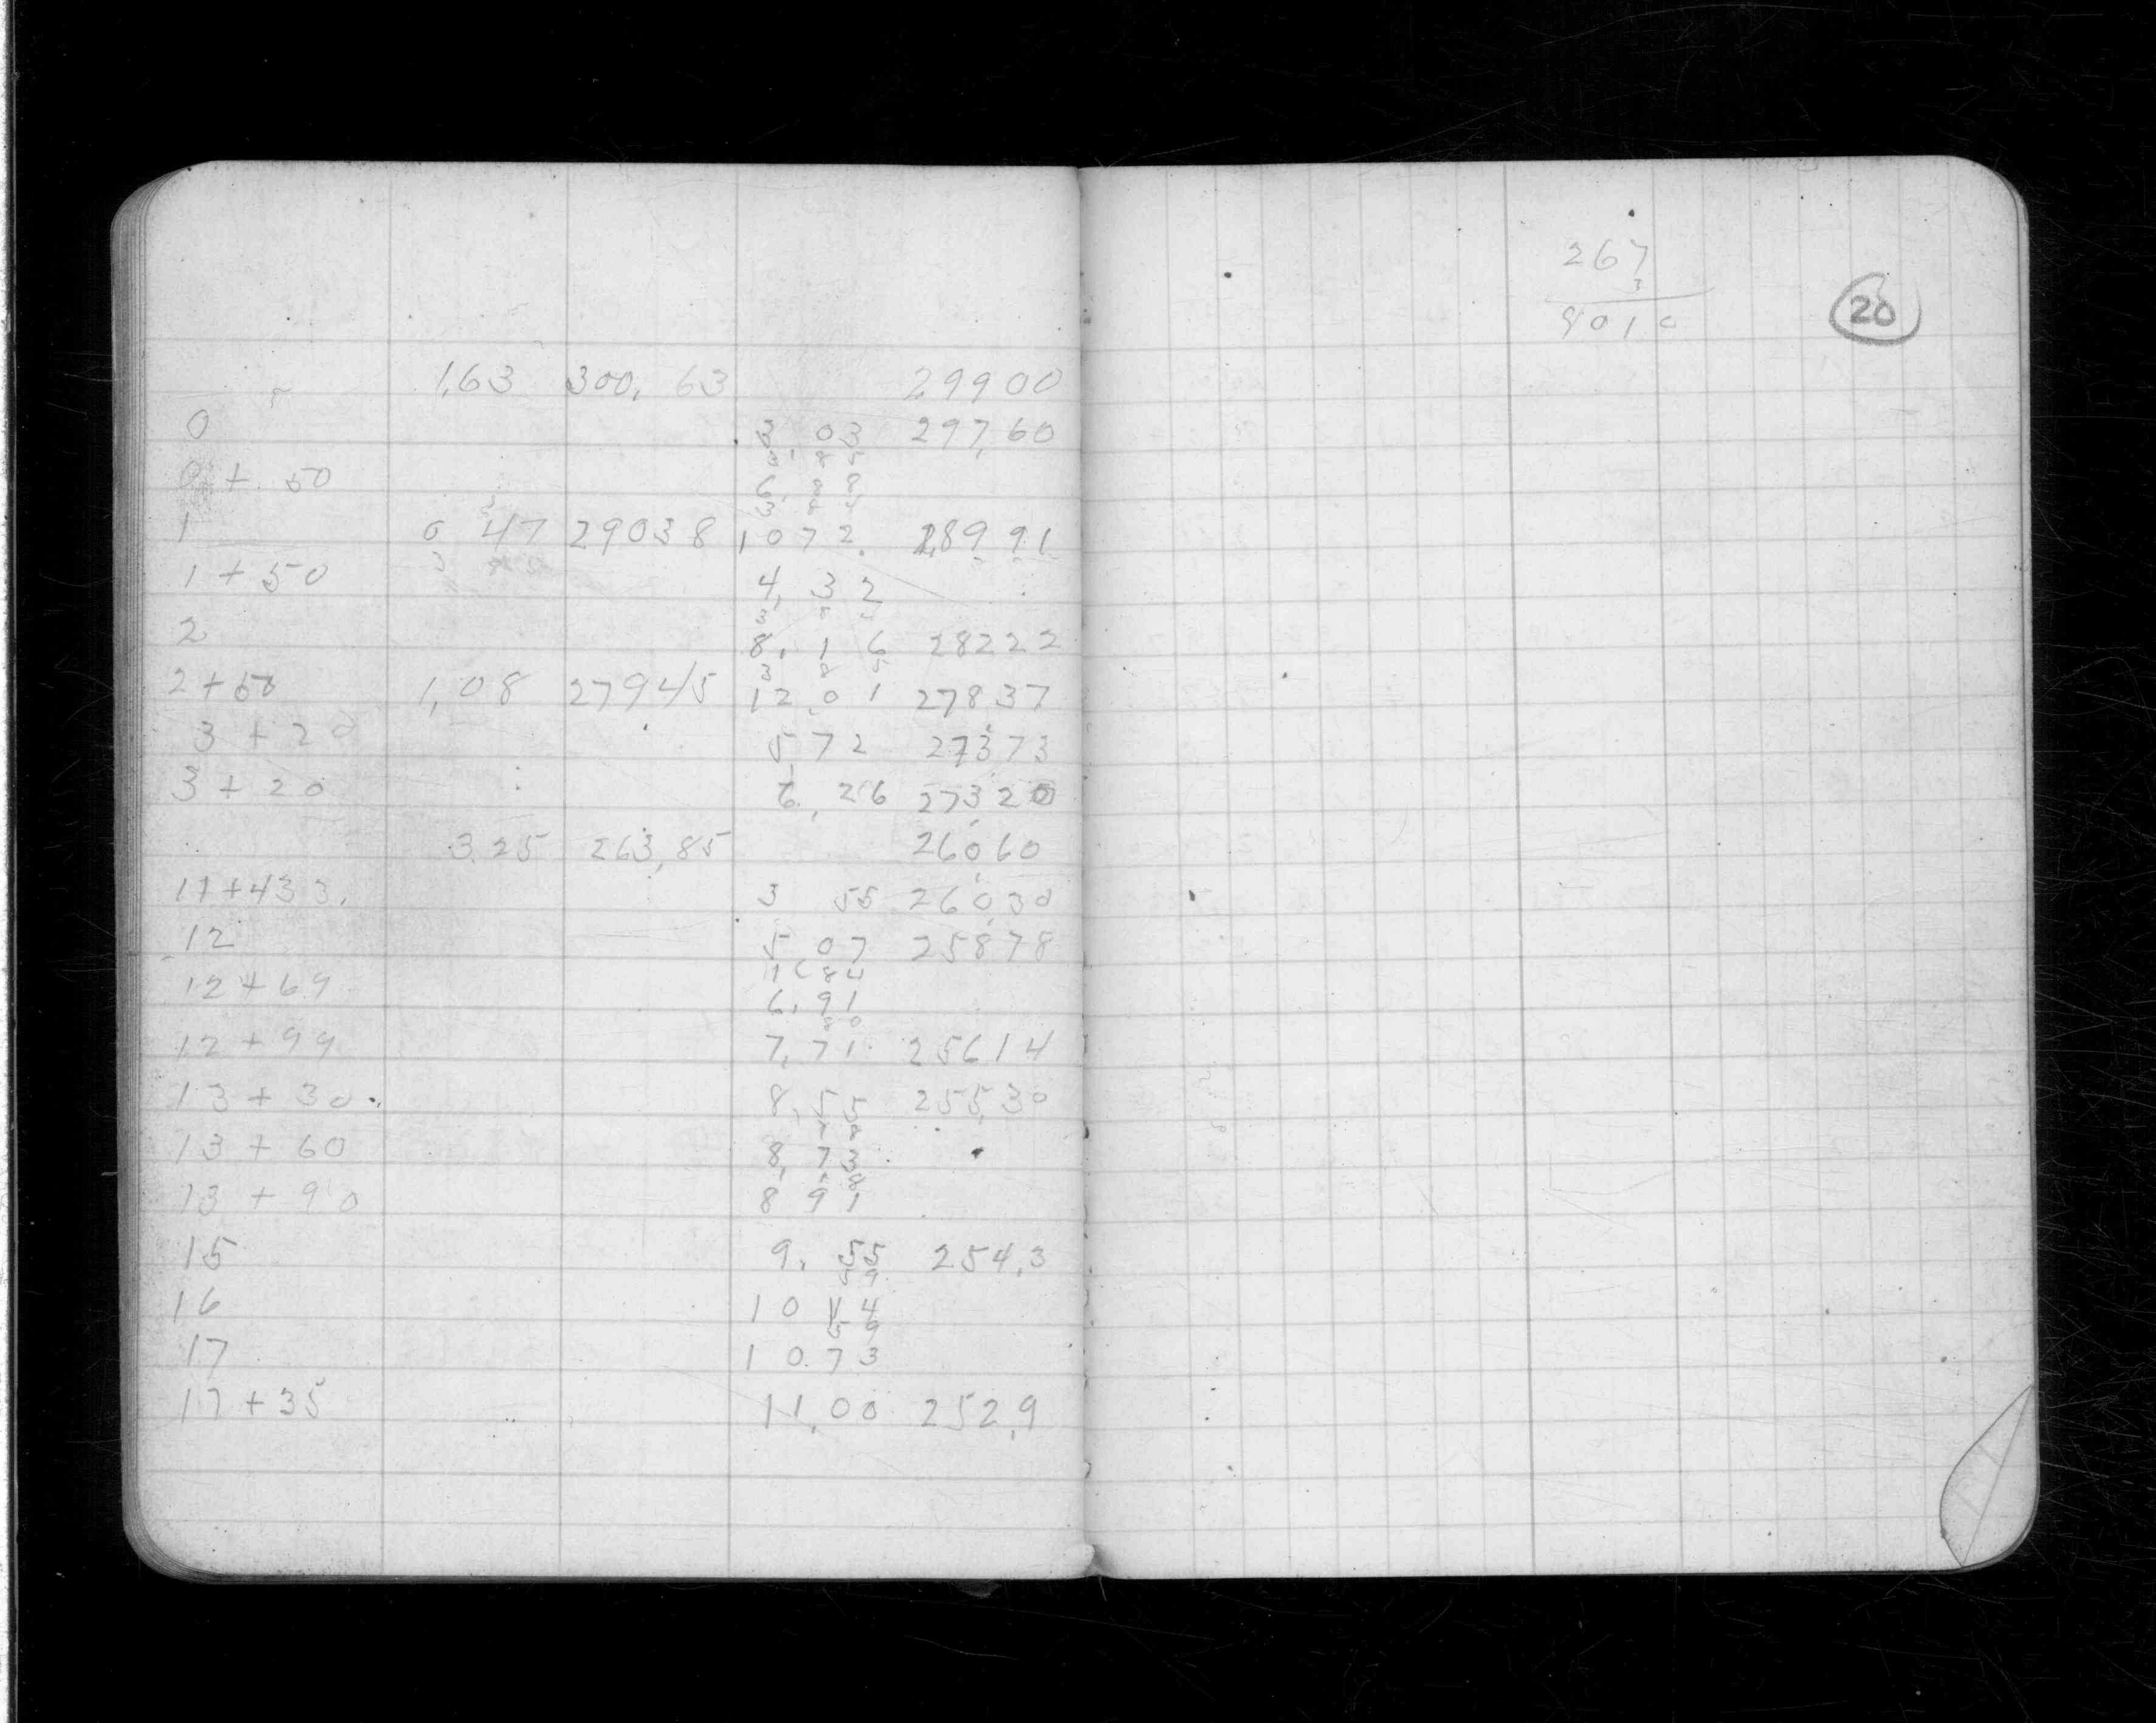 1,63 300,63 29900
0 3,03 297,60
0 + 50
1 0 47 29038 1072 28991
1 + 50 4,32
2 8,16 28222
3 8 5
2 + 50 1,08 27945 12,01 27837
3 + 20 5 72 27373
3 + 20 6,26 27320
3 25 263,85 26060
11+433. 3 55 26030
12 5 07 25878
1 84
12 + 69 6,91
80
12 + 99 7,71 25614
13 + 30 8,55 255,30
13 + 60 8,73
18
13 + 90 8 91
15 9,55 254,3
59
16 10 14
59
17 10.73
17 + 35 11,00 252,9
267
3
20